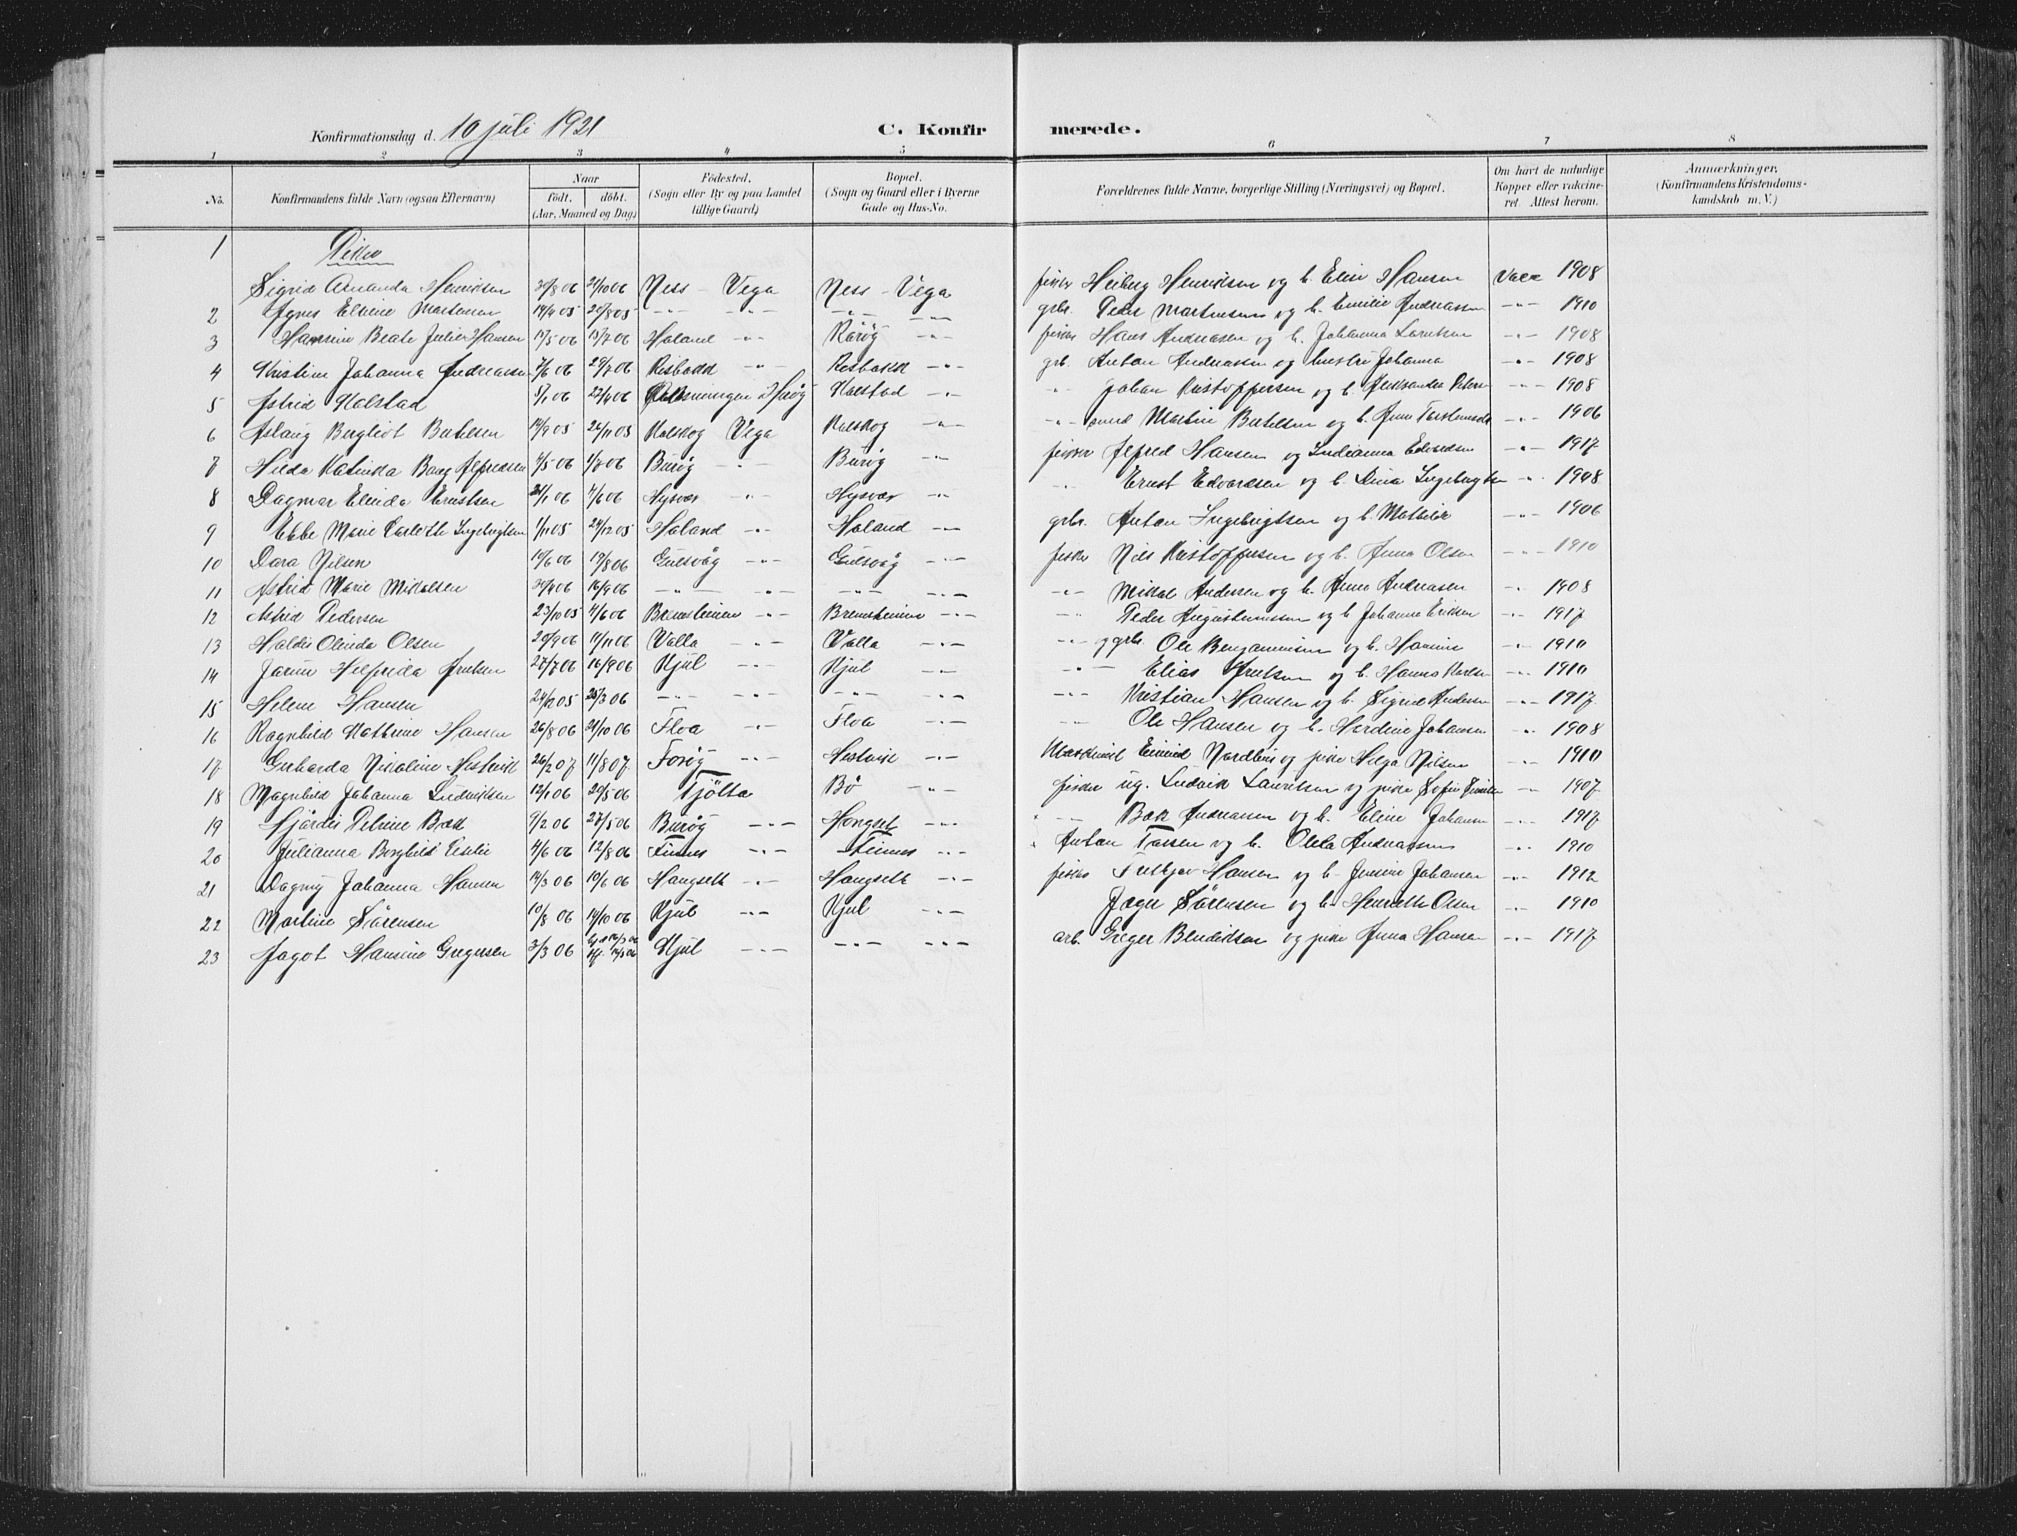 Konfirmationsdag d. 10 juli 1921 C. Konfirmerede.
1 2 3 4 5 6 7 8
No. Konfirmandens fulde Navn (ogsaa Efternavn) Naar født. døbt. (Aar, Maaned og Dag) Fødested. (Sogn eller By og paa Landet tillige Gaard) Bopæl. (Sogn og Gaard eller i Byerne Gade og Hus-No. Forældrenes fulde Navne, borgerlige Stilling (Næringsvei) og Bopæl. Om havt de naturlige Kopper eller vaccineret. Attest herom. Anmærkninger, (Konfirmandens Kristendomskundskab m. V.)
Piker
1 Sigrid Amanda Henriksen 30/8 06 21/10 06 Ness - Vega Ness - Vega fisker Heiberg Henriksen og h. Elise Hansen Vacc 1908
2 Agnes Elvine Martensen 19/4 05 20/8 05 -"- -"- -"- -"- grbr. Peder Martensen og h. Emilie Andreassen -"- 1910
3 Hansine Beate Julie Hansen 17/5 06 15/7 06 Holand -"- Rørøg -"- fisker Hans Andreassen og h. Johanna Laritsen -"- 1908
4 Kristine Johanna Andreassen 7/6 06 29/7 06 Risbakk -"- Risbakk -"- grb. Anton Andreassen og hustru Johanna -"- 1908
5 Astrid Kolstad 8/1 06 22/4 06 Kolstad -"- -"- Johan Kristoffersen og h. Aleksandra Peters -"- 1908
6 Aslaug Bergliot Bertelsen 14/9 05 26/11 05 Kalskog Vega Kalskog -"- -"- smed Martin Bertelsen og h. Anna -"- 1906
7 Hilda Katinka Borg Alfredsen 4/5 06 1/7 06 Burøg -"- Burøg -"- fisker Alfred Hansen og Indianna Edvardsen -"- 1917
8 Dagmar Elinda Ernstsen 21/1 06 4/6 06 Hysvær -"- Hysvær -"- -"- Ernst Edvardsen og h. Dina Ingebrigtsen -"- 1908
9 Ebbe Marie Carlotte Ingebrigtsen 1/11 05 24/12 05 Holand -"- Holand -"- grbr. Anton Ingebrigtsen og h. Mathilde -"- 1906
10 Dora Nilsen 10/6 06 19/8 06 Gulsvåg -"- Gulsvåg -"- fisker Nils Kristoffersen og h. Anna Olsen -"- 1910
11 Astrid Marie Mikalsen 30/4 06 16/9 06 -"- -"- -"- -"- -"- Mikal Andersen og h. Anna Andreasen -"- 1908
12 Astrid Pedersen 23/10 05 4/6 06 Bremsteinen -"- Bremsteinen -"- -"- Peder Augustinussen og h. Johanna Eriksen -"- 1917
13 Haldis Olinda Olsen 29/9 06 11/11 06 Valla -"- Valla -"- -"- og grbr. Ole Benjaminsen og h. Hansine -"- 1910
14 Helfrida Arntsen 27/7 06 16/9 06 Kjul -"- Kjul -"- -"- Elias Arntsen og h. Hanna Karlsen -"- 1910
15 Helene Hansen 24/12 05 25/3 06 -"- -"- -"- -"- -"- Kristian Hansen og h. Sigrid Andersen -"- 1917
16 Ragnhild Kathrine Hansen 26/8 06 21/10 06 Floa -"- Floa -"- -"- Ole Hansen og h. Hardine Johansen -"- 1908
17 Gerharda Nikoline Hestvik 26/2 07 11/8 07 Forøg -"- Hestvik -"- Maskinist Eivind Nordhus og pike Helga Nilsen -"- 1910
18 Magnhild Johanna Ludviksen 12/1 06 20/5 06 Tjøtta Bø -"- fisker ug. Ludvik Lauritsen og pike Sofie -"- 1907
19 Hjørdis Petrine Bakk 9/2 06 27/5 06 Burøg -"- Hongset -"- -"- Andreassen og h. Eline Johansen -"- 1917
20 Julianna Borghild 4/6 06 12/8 06 Finnes -"- Finnes -"- Anton Tossen og h. Oleta Andreassen -"- 1910
21 Dagny Johanna Hansen 14/3 06 10/6 06 Hongseth -"- Hongseth -"- fisker Hansen og h. Jensine Johansen -"- 1912
22 Martine Sørensen 10/8 06 14/10 06 Kjul -"- Kjul -"- Jæger Sørensen og h. Henriette Olsen -"- 1910
23 Hansine Gregersen 3/3 06 Kjul -"- -"- -"- arb. Greger Bendiksen og pike Anna Hansen -"- 1917